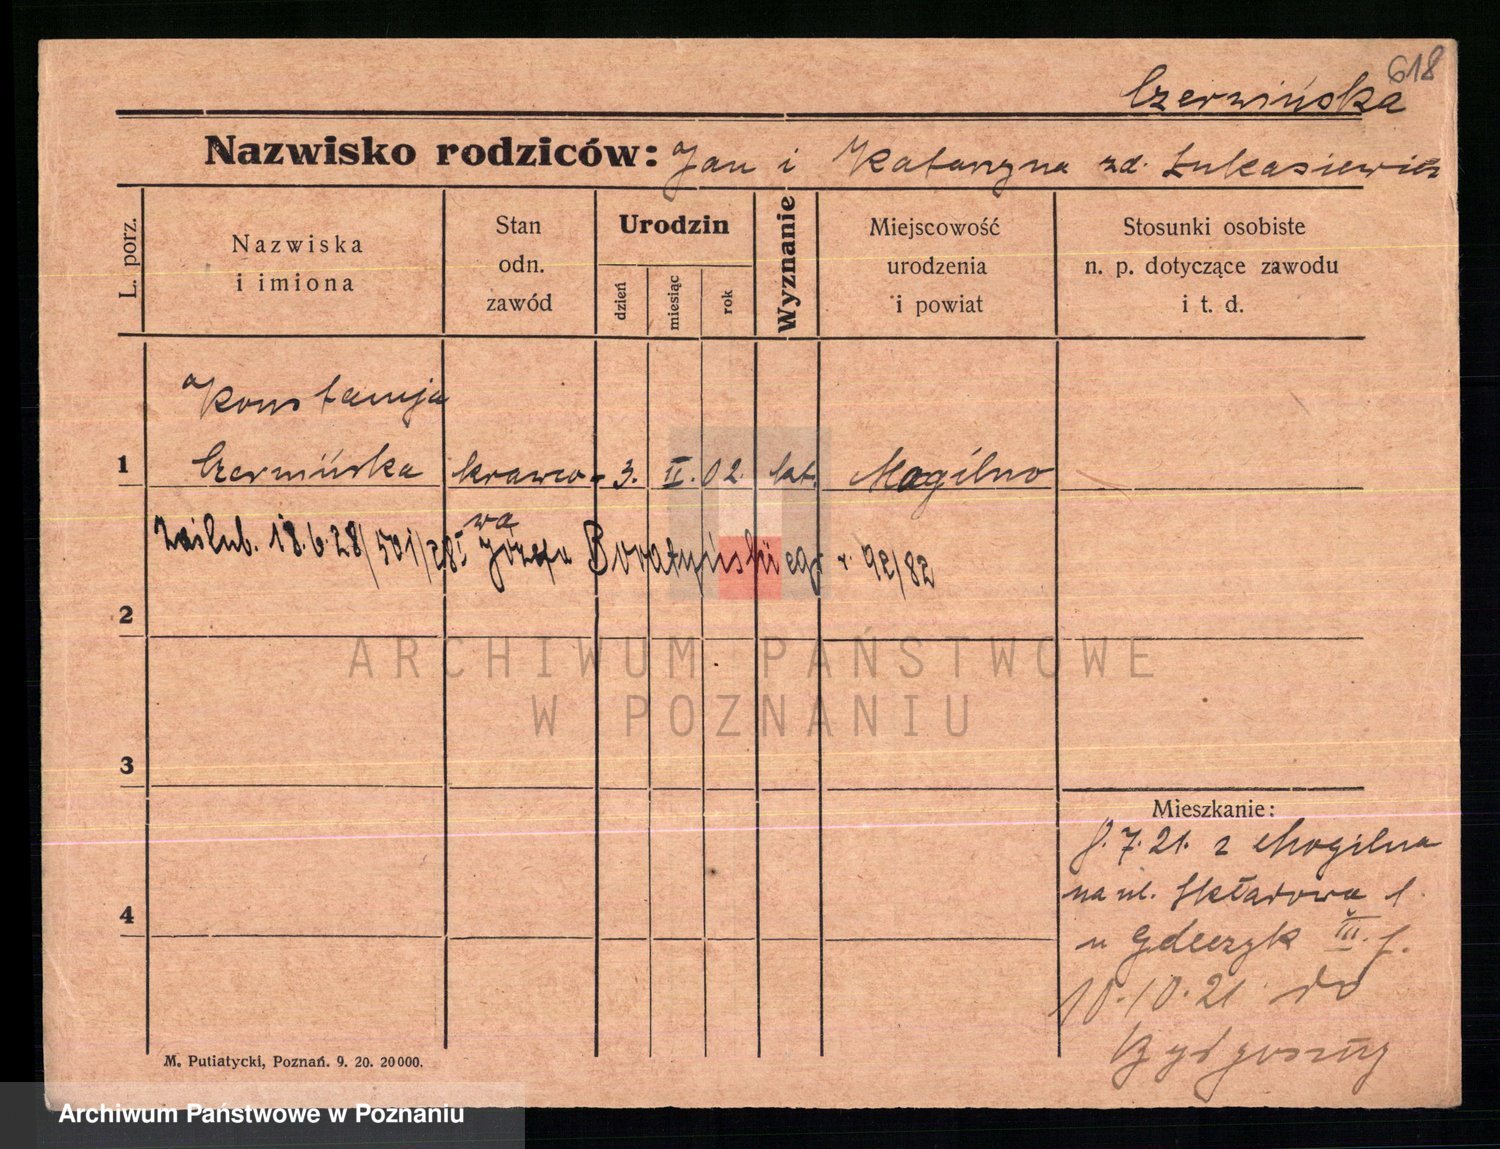 618
Czerwińska
Nazwisko rodziców: Jan i Katarzyna zd. Łukasiewicz
L. porz.
Nazwiska
i imiona
Stan
odn.
zawód
Urodzin
dzień
miesiąc
rok
Wyznanie
Miejscowość
urodzenia
i powiat
Stosunki osobiste
n. p. dotyczące zawodu
i t. d.
Konstancja
1 Czerwińska krawco- 3. II. 02. kat. Mogilno
wa
zaślub. 18.6.28/501/28 Józefa Boratyńskiego 92/82
2
ARCHIWUM PAŃSTWOWE
W POZNANIU
3
Mieszkanie:
7.21. z Mogilna
na ul. Składowa
4
u Gdeczyk III.
10.10.21 do
Bydgoszczy
M. Putiatycki, Poznań. 9. 20. 20000.
Archiwum Państwowe w Poznaniu